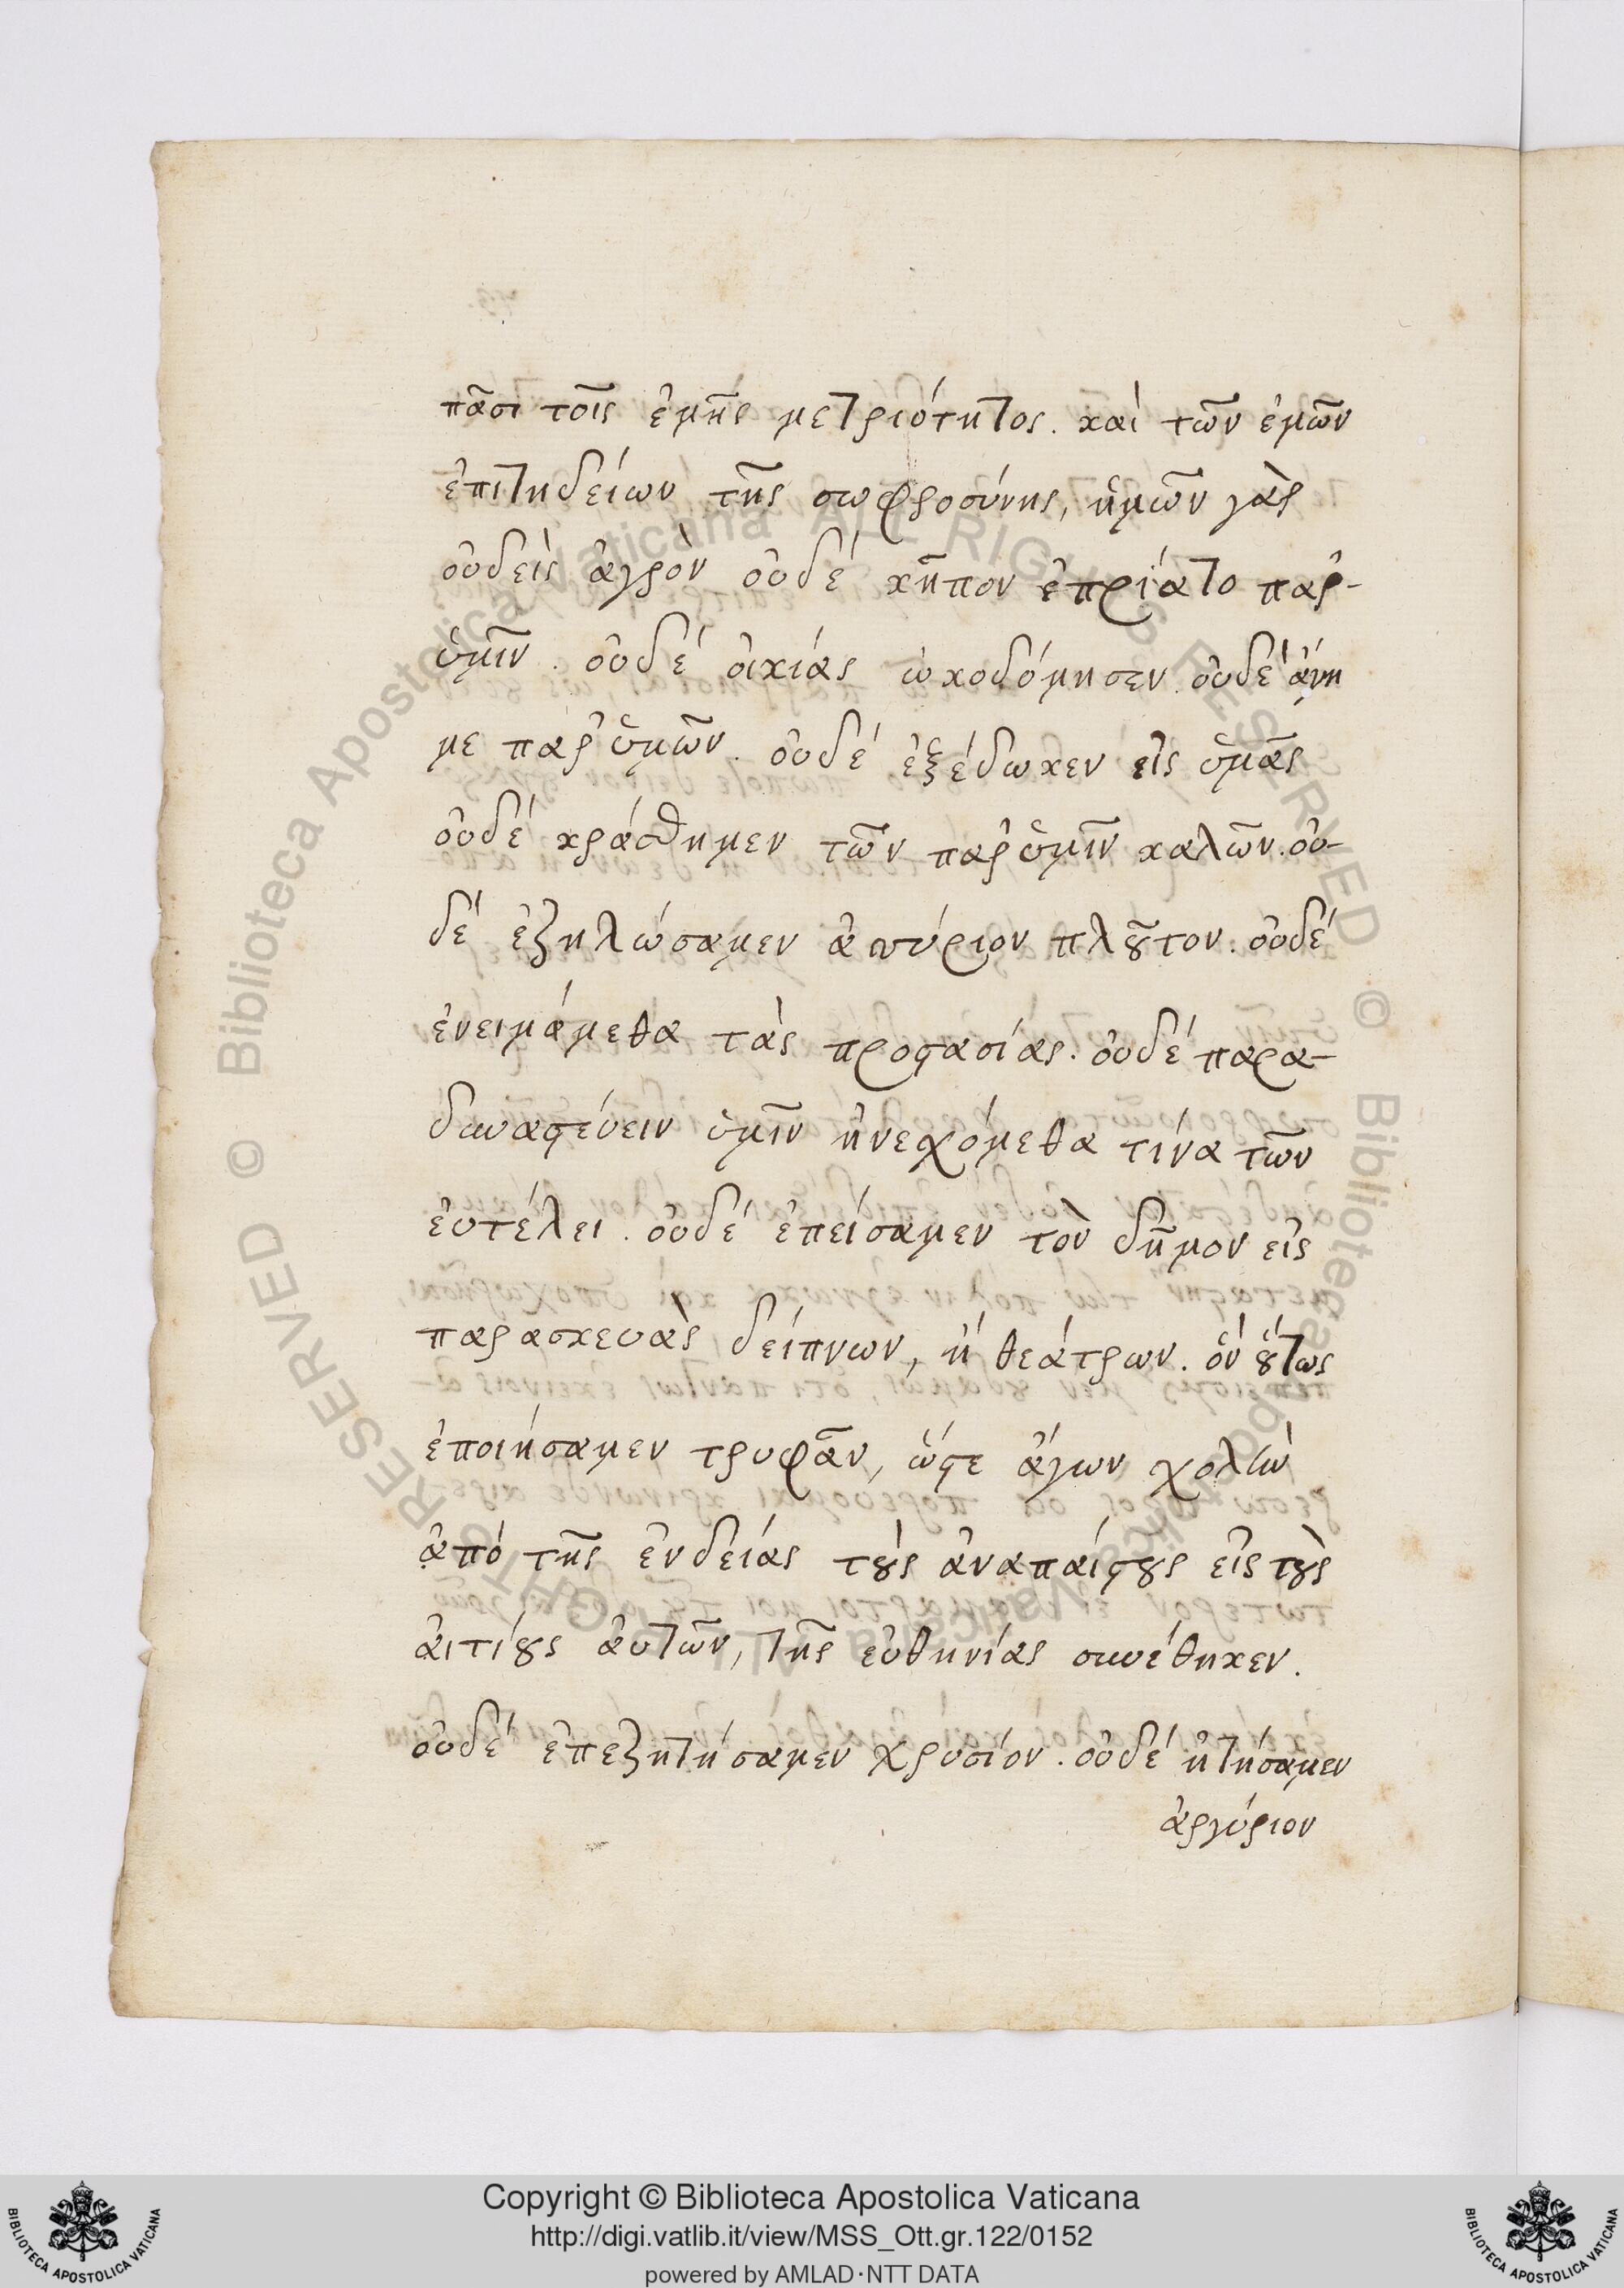 πᾶσι τοῖς ἐμῆς μετριότητος. καὶ τῶν ἐμῶν
ἐπιτηδείων τῆς σωφροσύνης, ἡμῶν γὰρ
οὐδεὶς ἀγρὸν οὐδέ κῆπον ἐπρίατο παρ-
ὑμῖν. οὐδέ οἰκίας ὠκοδόμησεν. οὐδέ ἔγη
με παρ' ὑμῶν. οὐδέ ἐξέδωκεν εἰς ὑμᾶς
οὐδέ κράσθημεν τῶν παρ' ὑμῖν καλῶν. οὐ-
δέ ἐζηλώσαμεν ἀσσύριον πλοῦτον. οὐδέ
ἐνειμάμεθα τὰς προστασίας. οὐδέ παρα-
δυναστεύειν ὑμῖν ἠνεχόμεθα τίνα τῶν
ἐυτέλει. οὐδέ ἐπείσαμεν τὸν δῆμον εἰς
παρασκευὰς δείπνων, ἢ θεάτρων. ὃν οὕτως
ἐποιήσαμεν τρυφᾶν, ὥστε ἄγων χολὴν
ἀπό τῆς ἐνδείας τοὺς ἀναπαίστους εἰς τοὺς
ἀιτίους ἀυτῶν, τῆς εὐθηνίας συνέθηκεν.
οὐδέ ἐπεζητήσαμεν χρυσίον. οὐδέ ᾐτήσαμεν
ἀργύριον
Copyright © Biblioteca Apostolica Vaticana
http://digi.vatlib.it/view/MSS_Ott.gr.122/0152
powered by AMLAD·NTT DATA